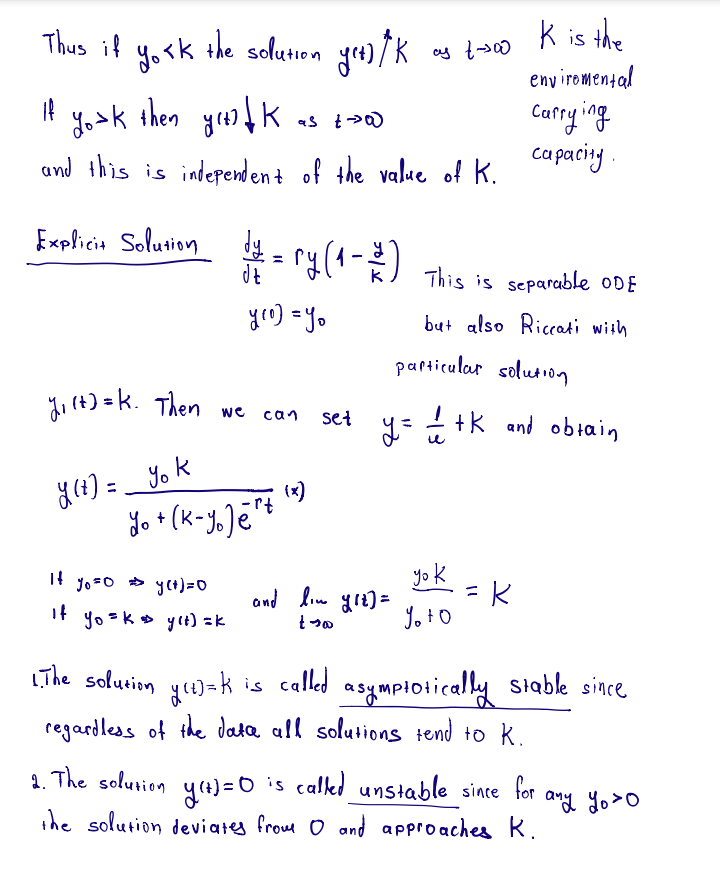 Thus if y₀<K the solution y(t)↗K as t→∞
K is the
enviromental
carrying
capacity.
If y₀>K then y(t)↓K as t→∞
and this is independent of the value of K.
Explicit Solution dy/dt = ry(1-y/K)
y(0)=y₀
This is separable ODE
but also Riccati with
particular solution
y₁(t)=K. Then we can set y = 1/u + K and obtain
y(t) = y₀K / (y₀+(K-y₀)e^-rt) (x)
If y₀=0 ⇒ y(t)=0
If y₀=K ⇒ y(t)=K
and lim t→∞ y(t) = y₀K / (y₀+0) = K
1. The solution y(t)=K is called asymptotically stable since
regardless of the data all solutions tend to K.
2. The solution y(t)=0 is called unstable since for any y₀>0
the solution deviates from 0 and approaches K.